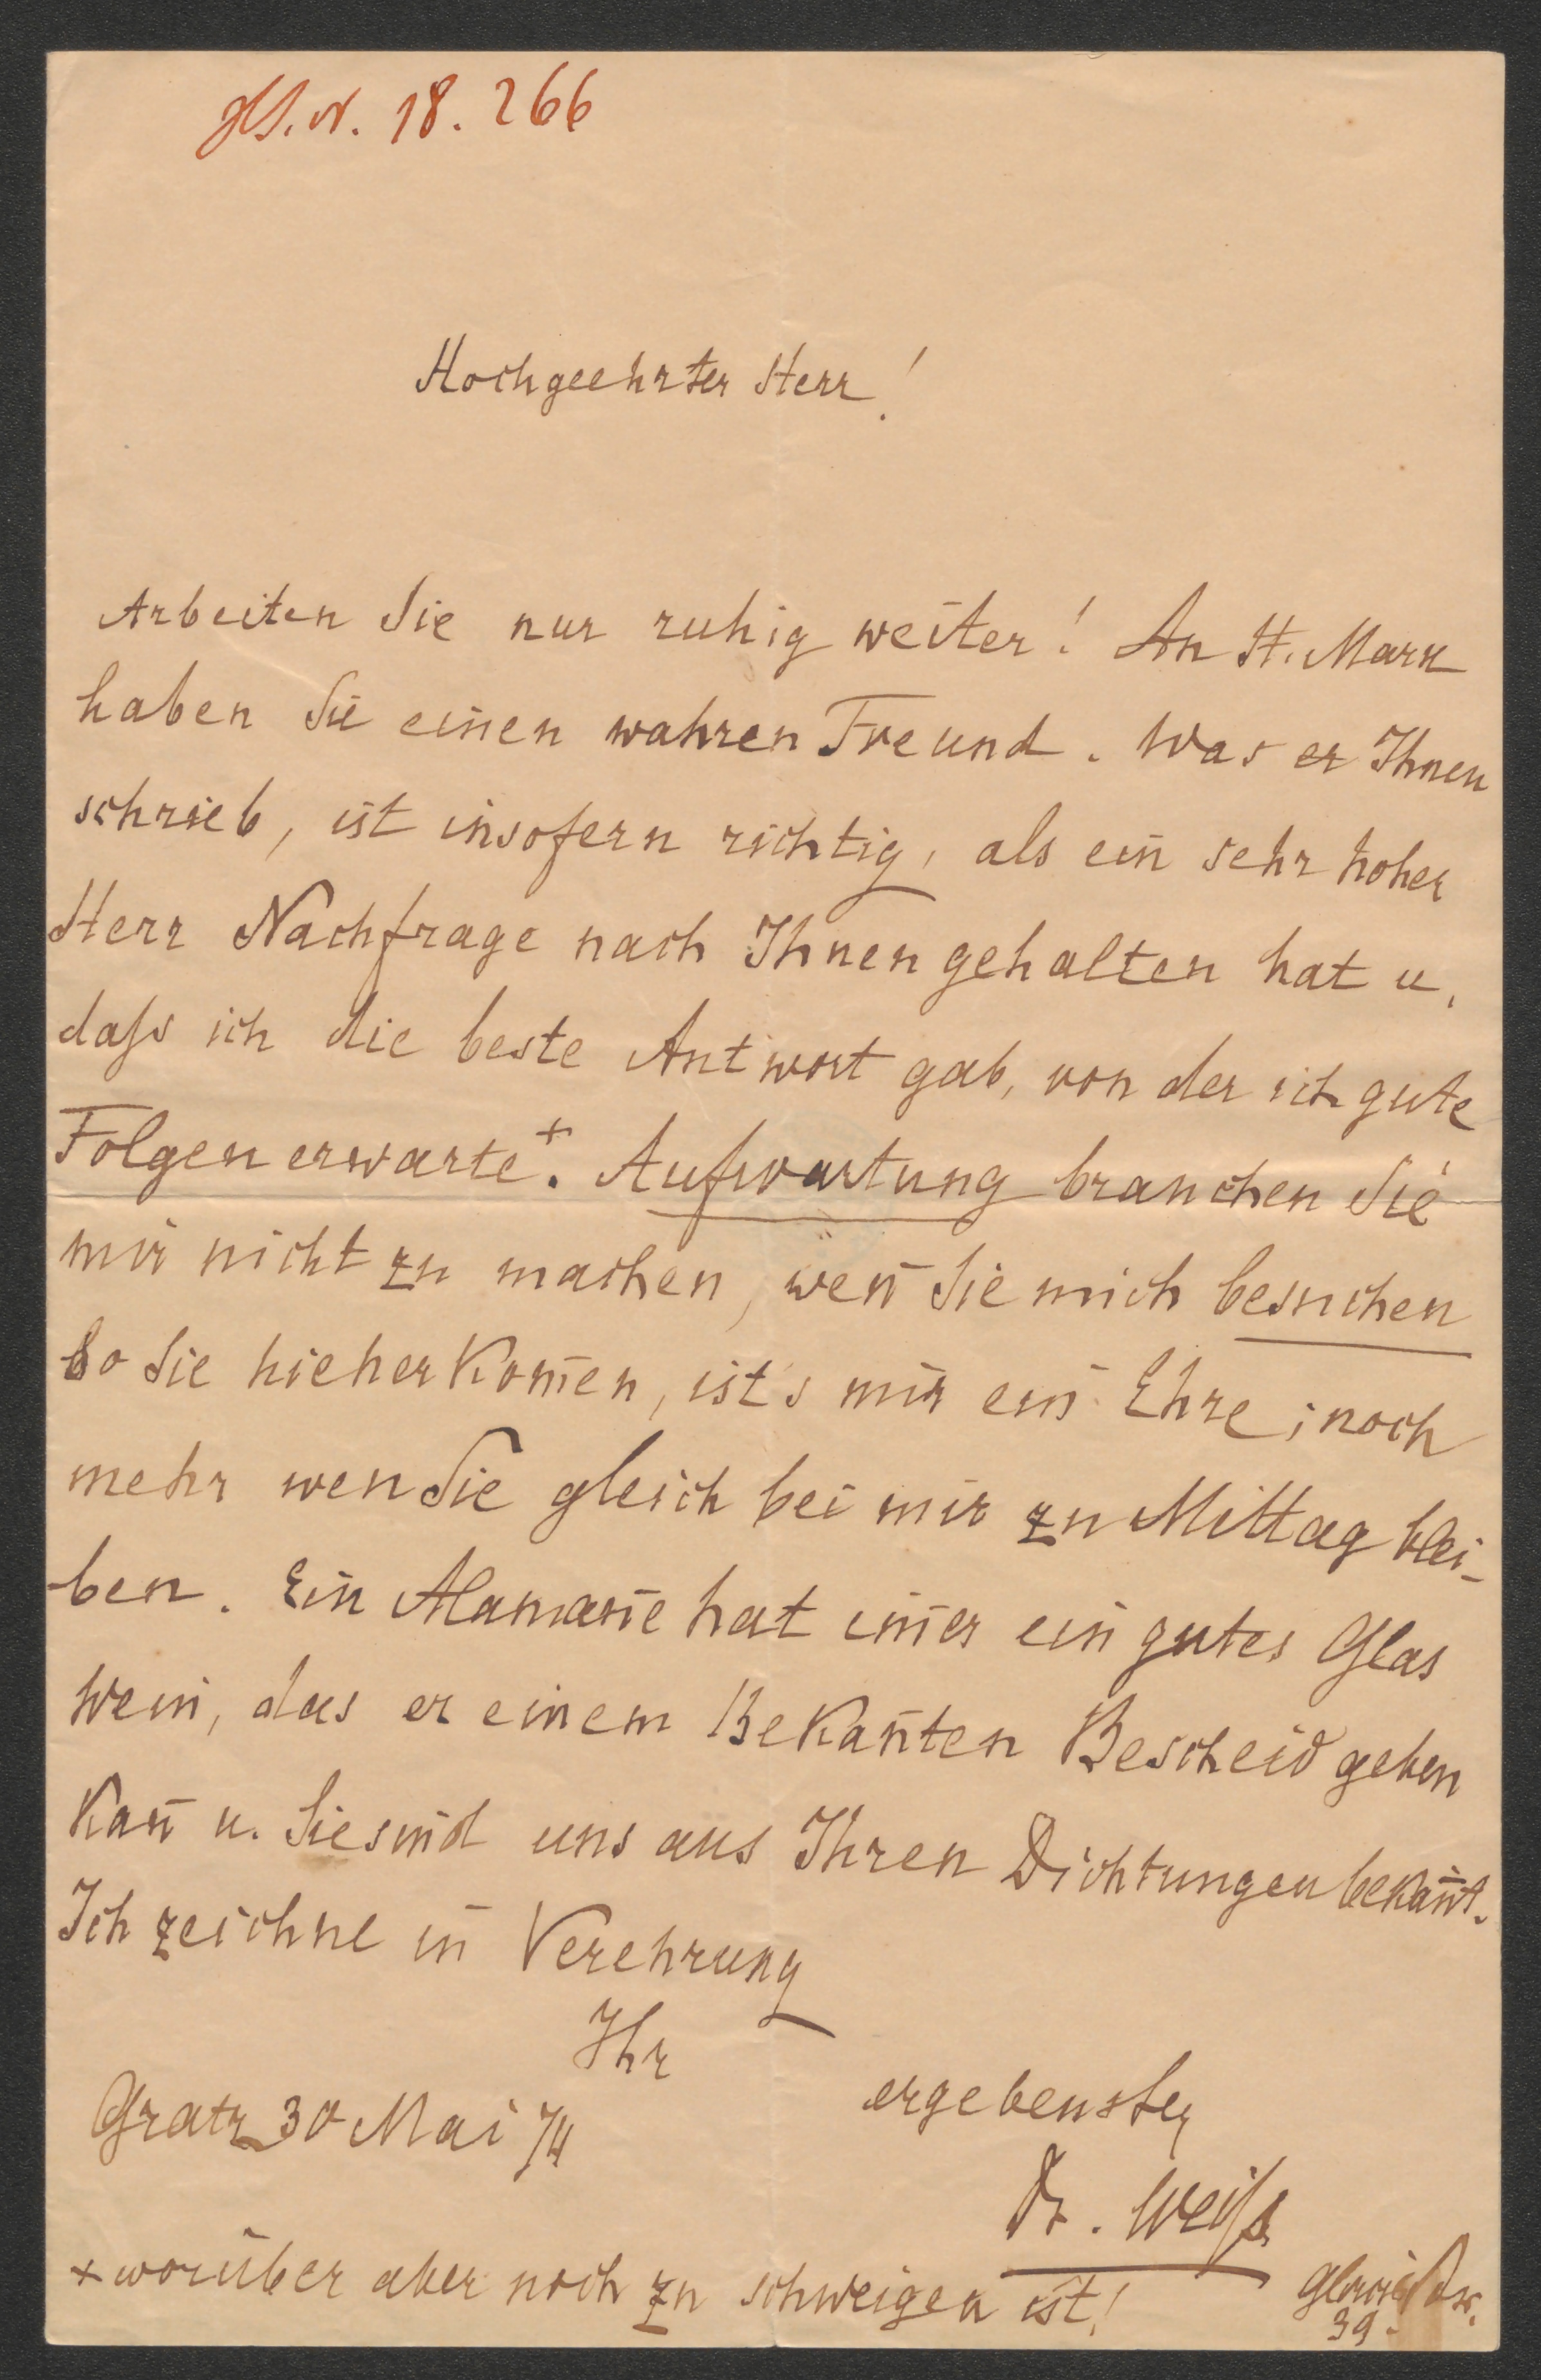 HS. N. 18. 266
Hochgeehrter Herr!
Arbeiten Sie nur ruhig weiter! An H. Mark
haben Sie einen wahren Freund. Was er Ihnen
schrieb, ist insofern richtig, als ein sehr hoher
Herr Nachfrage nach Ihnen gehalten hat u.
daß ich die beste Antwort gab, von der ich gute
Folgen erwarte+. Aufwartung brauchen Sie
mir nicht zu machen, weñ Sie mich besuchen
so Sie hieher kom̅en, ist's mir ein Ehre; noch
mehr wen Sie gleich bei mir zu Mittag blei-
ben. Ein Alamañe hat im̅er ein gutes Glas
Wein, das er einem Bekañten Bescheid geben
kañ u. Sie sind uns aus Ihren Dichtungen bekañt.
Ich zeichne in Verehrung
Ihr
ergebenster
Gratz 30 Mai 74
Dr. Weiß
+ worüber aber noch zu schweigen ist!
39.